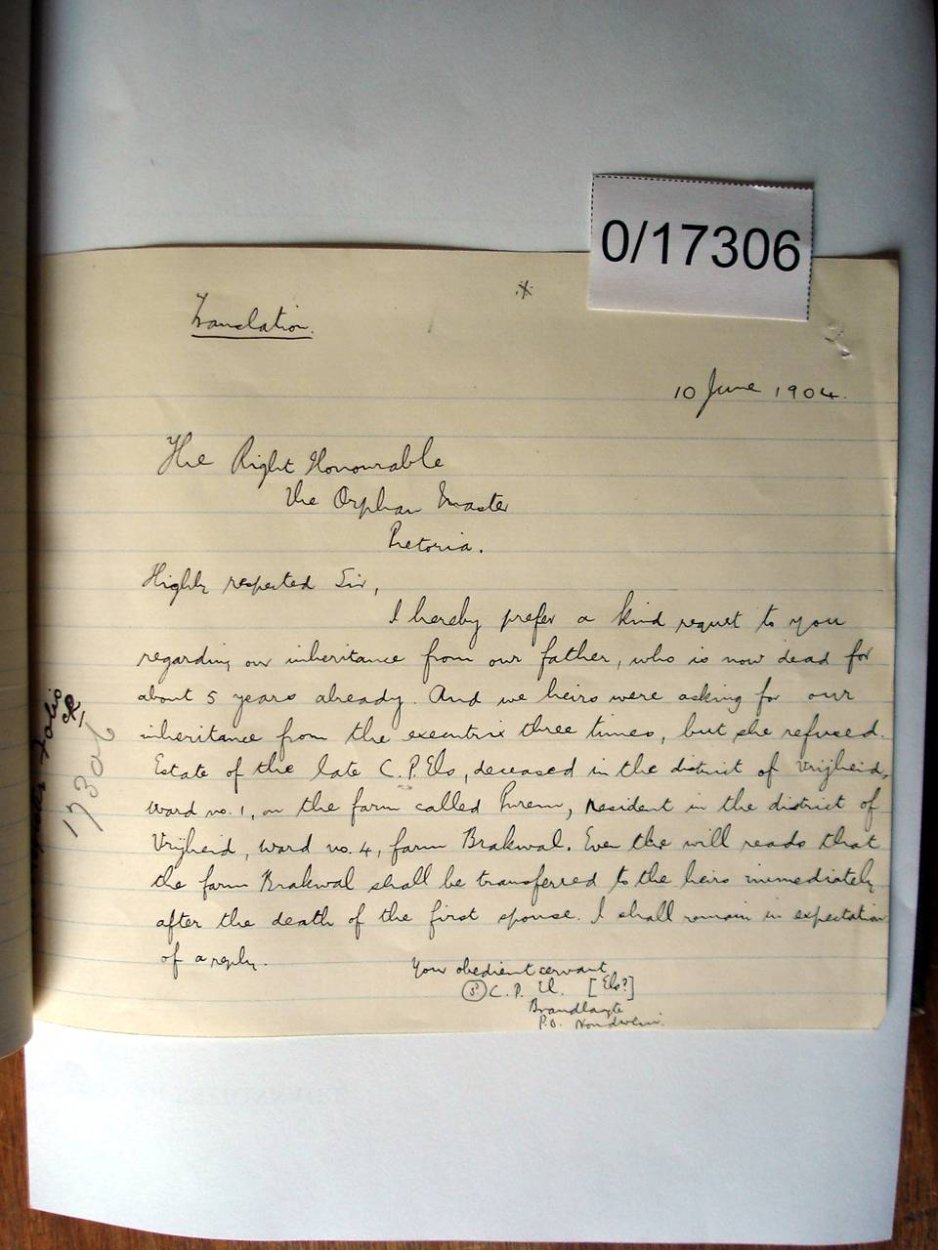 0/17306
Translation.
10 June 1904.
The Right Honourable
the Orphan Master
Pretoria.
Highly respected Sir,
I hereby prefer a kind request to you
regarding our inheritance from our father, who is now dead for
about 5 years already. And we heirs were asking for our
inheritance from the executrix three times, but she refused.
Estate of the late C.P. Els, deceased in the district of Vrijheid,
ward no. 1, on the farm called , resident in the district of
Vrijheid, ward no. 4, farm Brakwal. Even the will reads that
the farm Brakwal shall be transferred to the heirs immediately
after the death of the first spouse. I shall remain in expectation
of a reply.
Your obedient servant
(S) C. P. El. [Els?]
P.O. Nondweni.
Folio
17306